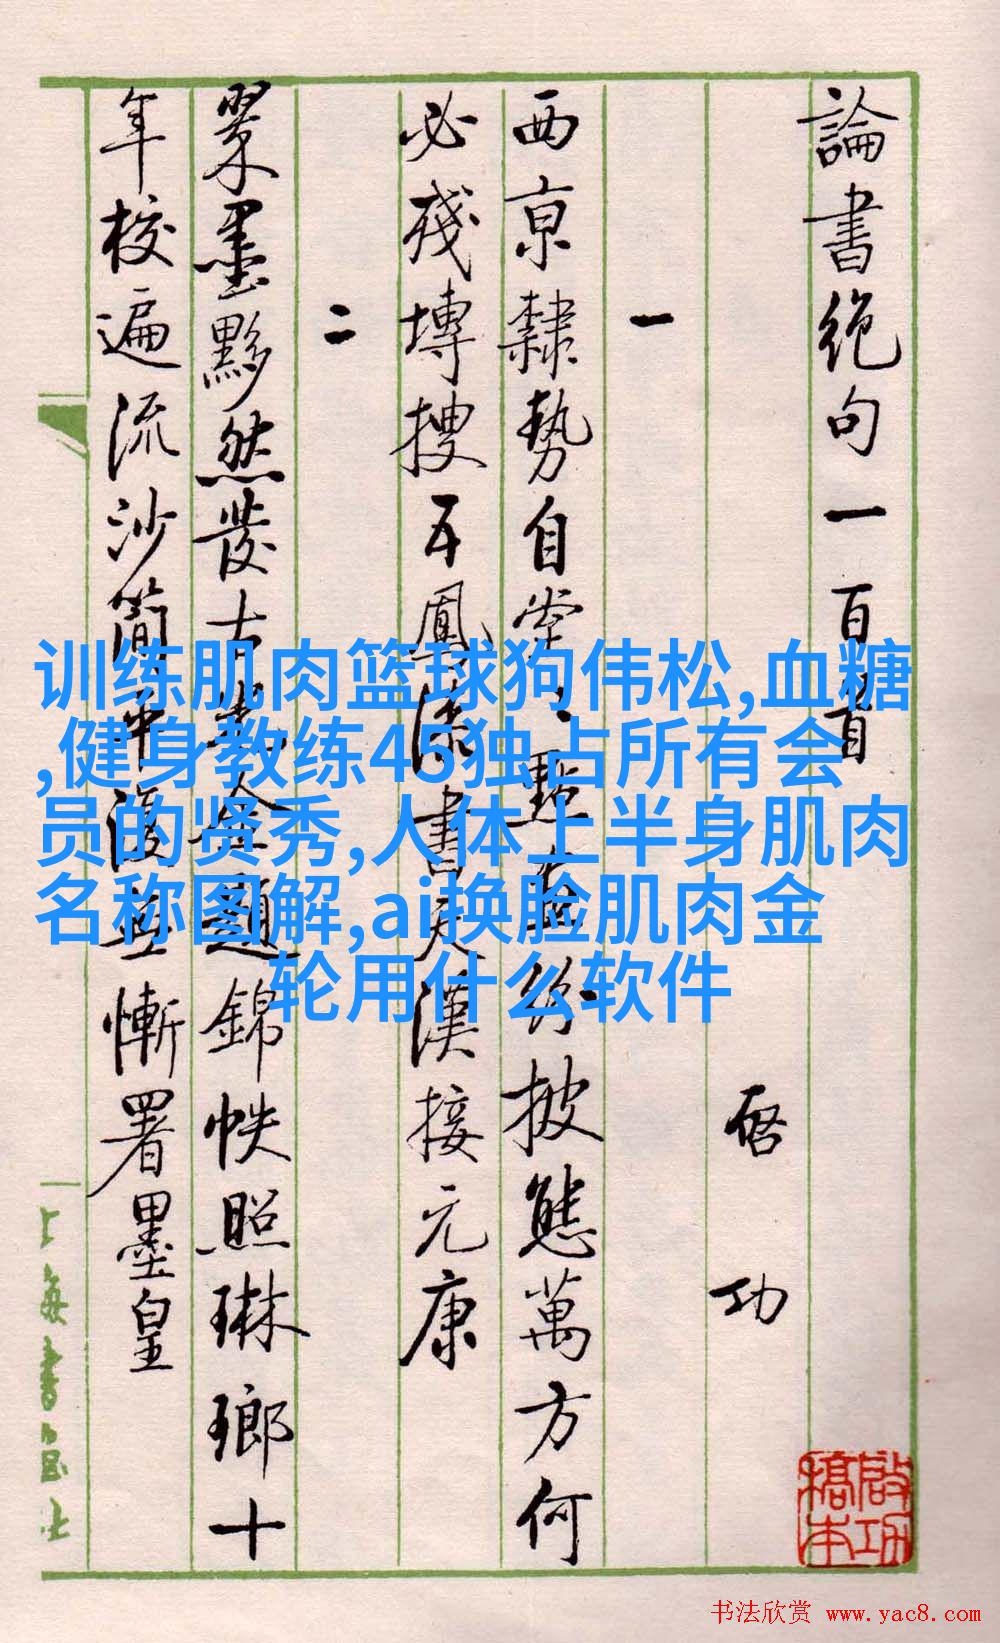 論書絶句一百首
启功
一
西京隸勢自堂々點畫紛披態萬方何
必殘塼搜五鳳漆書天漢接元康
二
翠墨黟然發古光金題錦帙照琳瑯十
年校遍流沙簡平復無慚署墨皇
训练肌肉篮球狗伟松,血糖
,健身教练45独占所有会
员的贤秀,人体上半身肌肉
名称图解,ai换脸肌肉金
轮用什么软件
啟功
稿本
书法欣赏 www.yac8.com